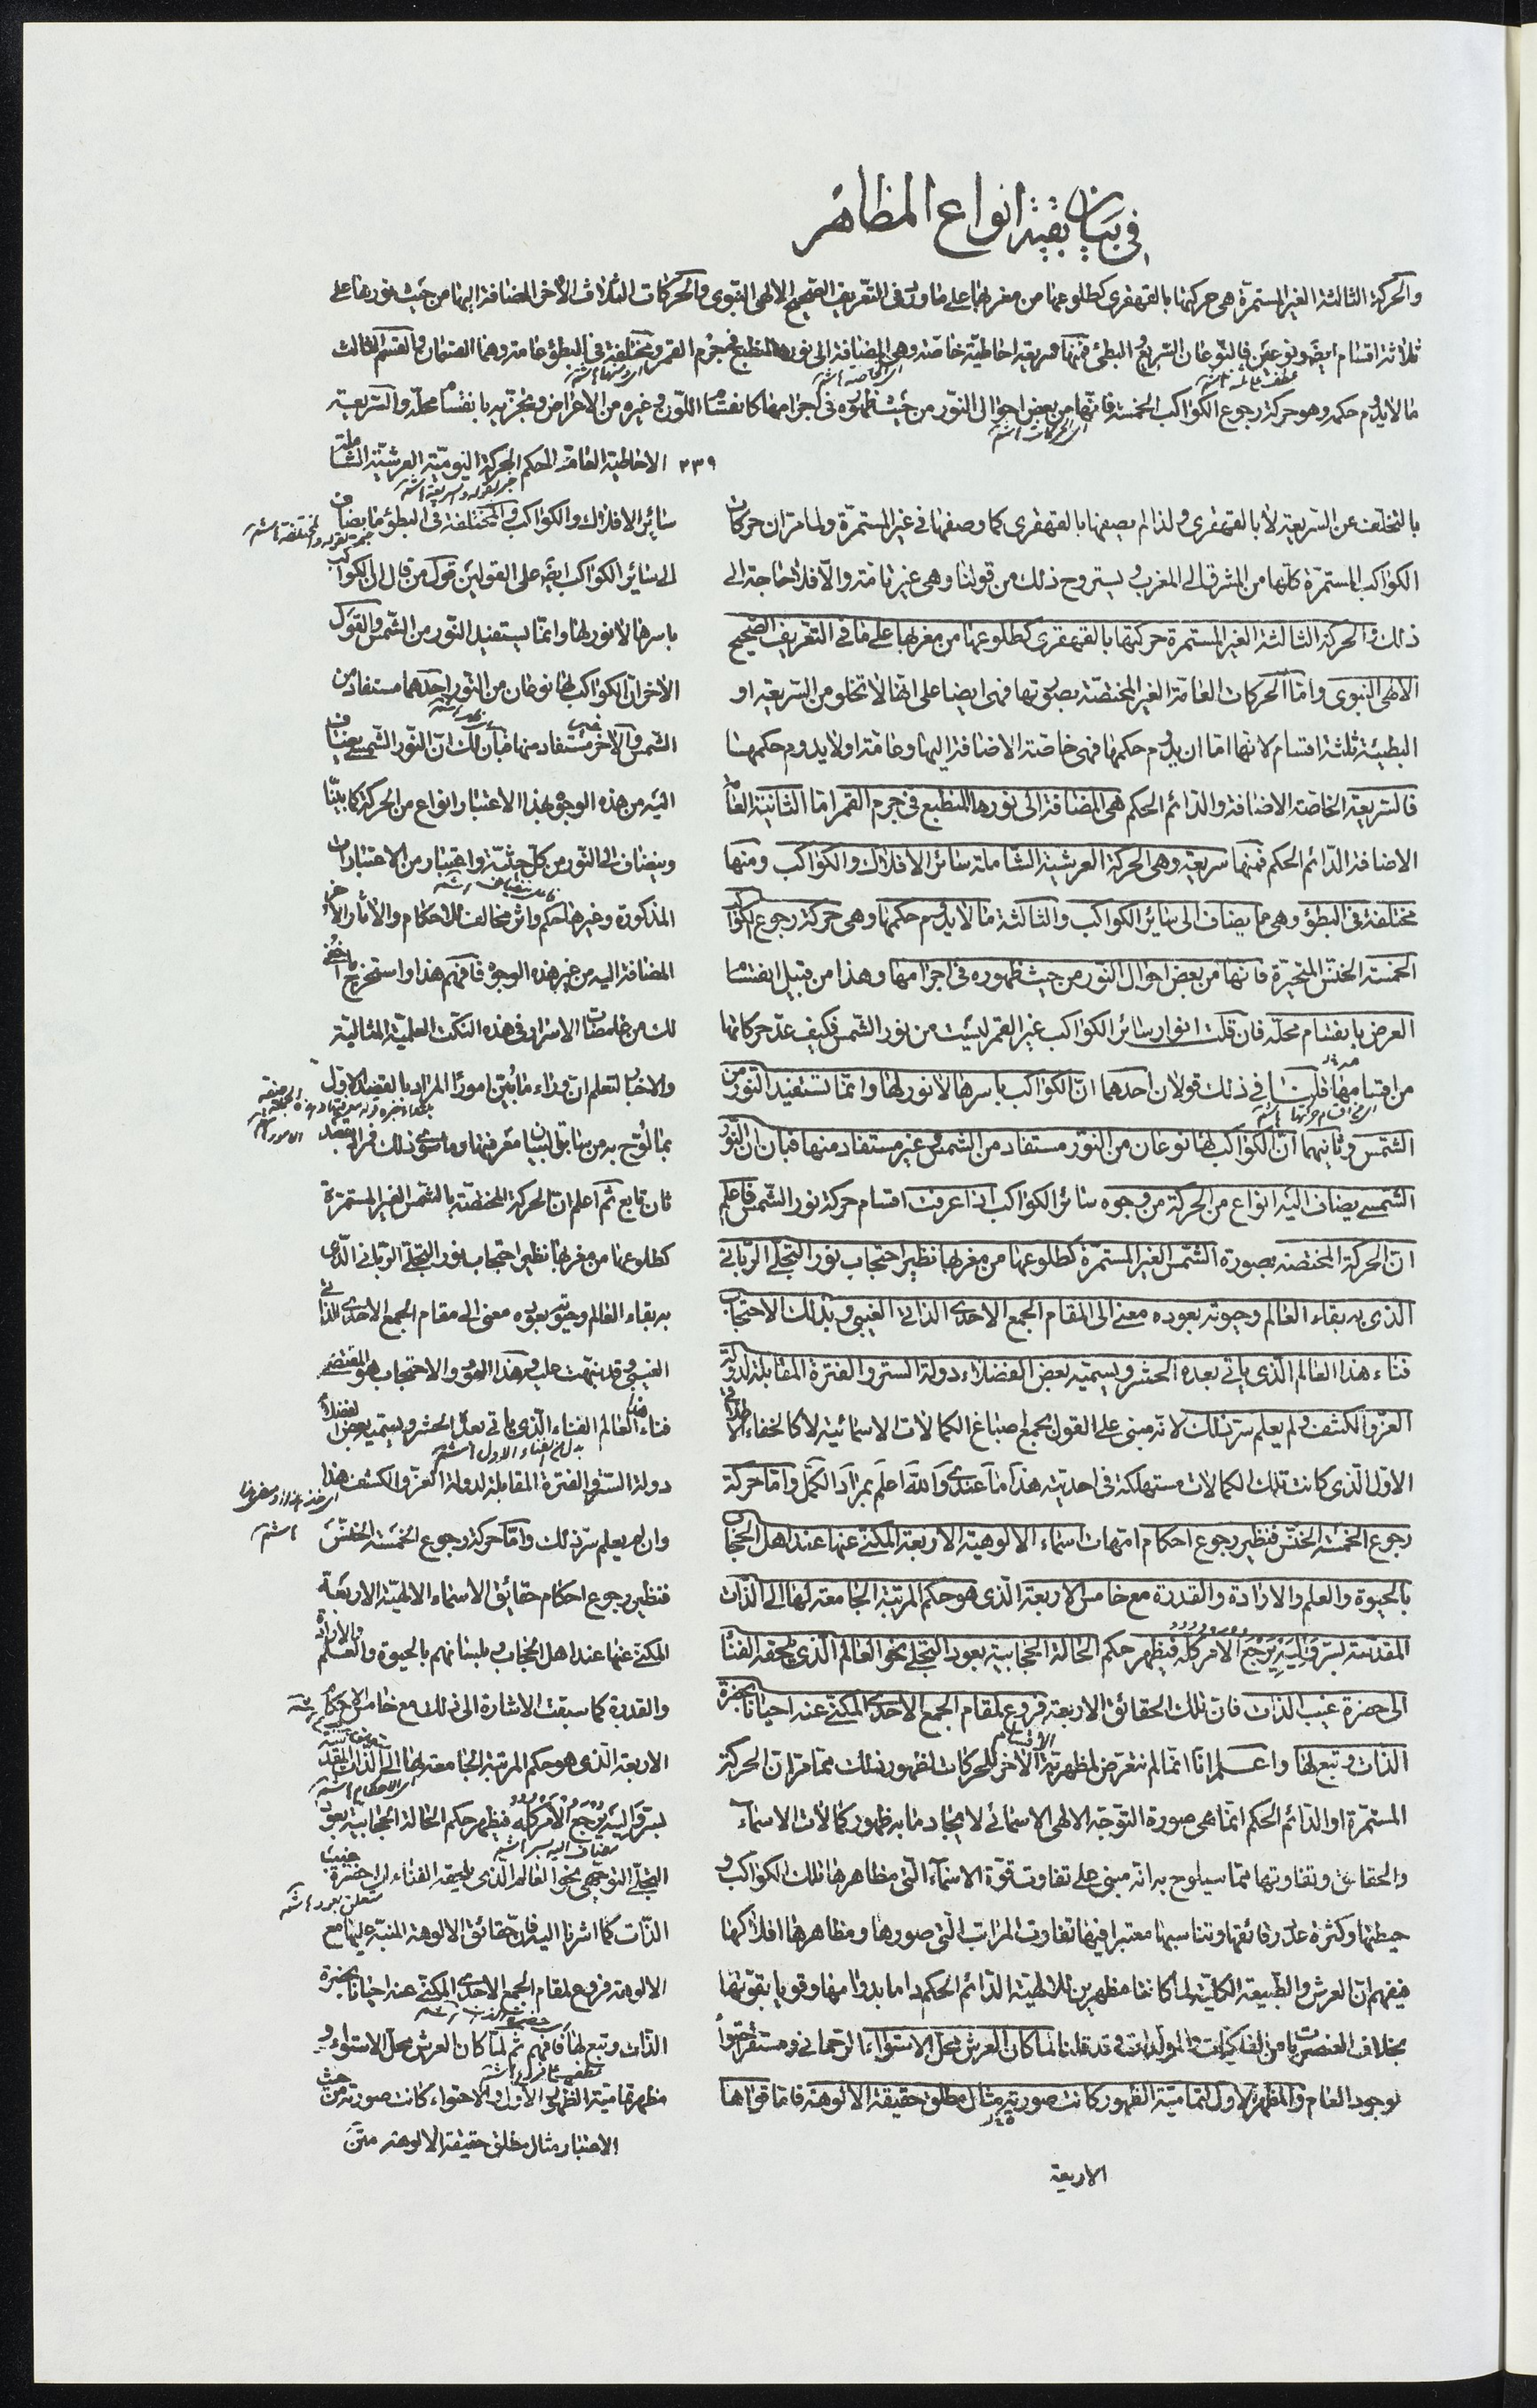 في بيان بقية انواع المظاهر
والحركة الثالثة الغير المستمرة هي حركتها بالقهقرى كطلوعها من مغربها على ما ورد في التعريف الصحيح الالهي النبوي والحركات الثلاث الأخر المضافة اليها من حيث نورها على
ثلاثة اقسام ايضا ونوعين فالنوعان السريع والبطئ فمنها سريعة احاطية خاصة وهي المضافة الى نورها المنطبع في جرم القمر ومختلفة في البطؤ عامة وهما القسمان والقسم الثالث
ما لا يدوم حكمه وهو حركة رجوع الكواكب الخمسة فانها من بعض احوال النور من حيث ظهوره في اجرامها كانقسام اللون وغيره من الاعراض وتجزيه بانقسام محله والسريعة
٢٣٩ الاحاطية العامة الحكم الحركة اليومية العرشية الشاملة
بالتخلف عن السريعة لا بالقهقرى ولذا لم يصفها بالقهقرى كما وصفها في غير المستمرة ولما مر ان حركات
الكواكب المستمرة كلها من المشرق الى المغرب يستروح ذلك من قولنا وهي غير تامة والا فلا حاجة الى
ذلك والحركة الثالثة الغير المستمرة حركتها بالقهقرى كطلوعها من مغربها على ما في التعريف الصحيح
الالهي النبوي واما الحركات العامة الغير المختصة بصورتها فهي ايضا على انها لا تخلو من السريعة او
البطيئة ثلثة اقسام لانها اما ان يدوم حكمها فهي خاصة الاضافة اليها وعامة او لا يدوم حكمها
فالسريعة الخاصة الاضافة والدائم الحكم هي المضافة الى نورها المنطبع في جرم القمر اما الثانية العامة
الاضافة الدائم الحكم فمنها سريعة وهي الحركة العرشية الشاملة سائر الافلاك والكواكب ومنها
مختلفة في البطؤ وهي مما يضاف الى سائر الكواكب والثالثة ما لا يدوم حكمها وهي حركة رجوع الكواكب
الخمسة الخنس المتحيرة فانها من بعض احوال النور من حيث ظهوره في اجرامها وهذا من قبيل انقسام
العرض بانقسام محله فان قلت انوار سائر الكواكب غير القمر ليست من نور الشمس فكيف عد حركاتها
من اقسامها قلنا في ذلك قولان احدهما ان الكواكب باسرها لا نور لها وانما تستفيد النور من
الشمس وثانيهما ان الكواكب لها نوعان من النور مستفاد من الشمس وغير مستفاد منها فبان ان النور
الشمسي يضاف اليه انواع من الحركة من وجوه سائر الكواكب اذا عرفت اقسام حركة نور الشمس فاعلم
ان الحركة المختصة بصورة الشمس الغير المستمرة كطلوعها من مغربها نظير احتجاب نور التجلي الرباني
الذي به بقاء العالم وحيوته بعوده معنى الى المقام الجمع الاحدي الذاتي الغيبي وبذلك الاحتجاب
فناء هذا العالم الذي ياتي بعده الحشر ويسميه بعض الفضلاء دولة الستر والفترة المقابلة لدولة
العز والكشف ولم يعلم سر ذلك لانه مبني على القول بجمع اصباغ الكمالات الاسمائية لا كالخفاء الاطلاقي
الاول الذي كانت تلك الكمالات مستهلكة في احديته هذا ما عندي والله اعلم بمراد الكمل واما حركة
رجوع الخمسة الخنس فنظير رجوع احكام امهات اسماء الالوهية الاربعة المكنى عنها عند اهل الحجاب
بالحيوة والعلم والارادة والقدرة مع خامس الاربعة الذي هو حكم المرتبة الجامعة لها الى الذات
المقدسة بسر واليه يرجع الامر كله فيظهر حكم الحالة الحجابية بعود التجلي نحو العالم الذي يلحقه الفناء
الى حضرة غيب الذات فان تلك الحقائق الاربعة فروع لمقام الجمع الاحدي المكنى عنه احيانا بحضرة
الذات وتبع لها واعلم انا انما لم نتعرض لمظهرية الاقسام الاخر للحركات لظهور ذلك مما مر ان الحركة
المستمرة او الدائم الحكم انما هي صورة التوجه الالهي الاسمائي لايجاد ما به ظهور كمالات الاسماء
والحقايق وتفاوتها مما سيلوح به انه مبني على تفاوت قوة الاسماء التي مظاهرها تلك الكواكب و
حيطتها وكثرة عدد رقائقها وتناسبها معتبرا فيها تفاوت المراتب التي صورها ومظاهرها افلاكها
فيفهم ان العرش والطبيعة الكلية لما كانتا مظهرين للالهية الدائم الحكم داما بدوامها وقويا بقوتها
بخلاف العنصريات من الفلكيات والمولدات وقد قلنا لما كان العرش محل الاستواء الرحماني ومستقر احتواء
لوجود العام والمظهر الاول لتمامية الظهور كانت صورته مثال مطلق حقيقة الالوهة فاما قواها
الاربعة
سائر الافلاك والكواكب والمختلفة في البطؤ ما يضاف
الى سائر الكواكب ايضا على القولين قول من قال ان الكواكب
باسرها لا نور لها وانما يستفيد النور من الشمس والقول
الاخر ان الكواكب لها نوعان من النور احدهما مستفاد من
الشمس والاخر غير مستفاد منها فبان لك ان النور الشمسي يضاف
اليه من هذه الوجوه بهذا الاعتبار انواع من الحركة كما بينا
وينضاف الى النور من كل حيثية واعتبار من الاعتبارات
المذكورة وغيرها حكم واثر مخالف للاحكام والاثار الاخر
المضافة اليه من غير هذه الوجوه فافهم هذا واستخرج ما خفي
لك من غامضات الاسرار في هذه النكت العلمية المثالية
والاخبار لتعلم ان وراء ما بين امورا المراد بالقصد الاول
بما لوح به من سابق البيان معرفتها وما سوى ذلك فمراد بقصد
ثان تابع ثم اعلم ان الحركة المختصة بالشمس الغير المستمرة
كطلوعها من مغربها نظير احتجاب نور التجلي الرباني الذي
به بقاء العالم وحيوته بعوده معنى الى مقام الجمع الاحدي الذاتي
الغيبي وقد نبهت عليه وهذا العود والاحتجاب هو المقتضي
فناء العالم الفناء الذي ياتي بعده الحشر ويسميه بعض الفضلاء
دولة الستر والفترة المقابلة لدولة العز والكشف هذا
وان لم يعلم سر ذلك واما حركة رجوع الخمسة الخنس
فنظير رجوع احكام حقائق الاسماء الالهية الاربعة
المكنى عنها عند اهل الحجاب وبلسانهم بالحيوة والعلم والارادة
والقدرة كما سبقت الاشارة الى ذلك مع خامس الاحكام
الاربعة الذي هو حكم المرتبة الجامعة لها الى الذات المقدسة
بسر واليه يرجع الامر كله فيظهر حكم الحالة الحجابية بعود
التجلي التوجهي نحو العالم الذي يلحقه الفناء الى حضرة غيب
الذات كما اشرنا اليه فان حقائق الالوهة المنبه عليها مع
الالوهة فروع لمقام الجمع الاحدي المكنى عنه احيانا بحضرة
الذات وتبع لها فافهم ثم لما كان العرش محل الاستواء و
مظهر تمامية الظهور الاول والاحتواء كانت صورته من حيث
الاعتبار مثال مطلق حقيقة الالوهة متن